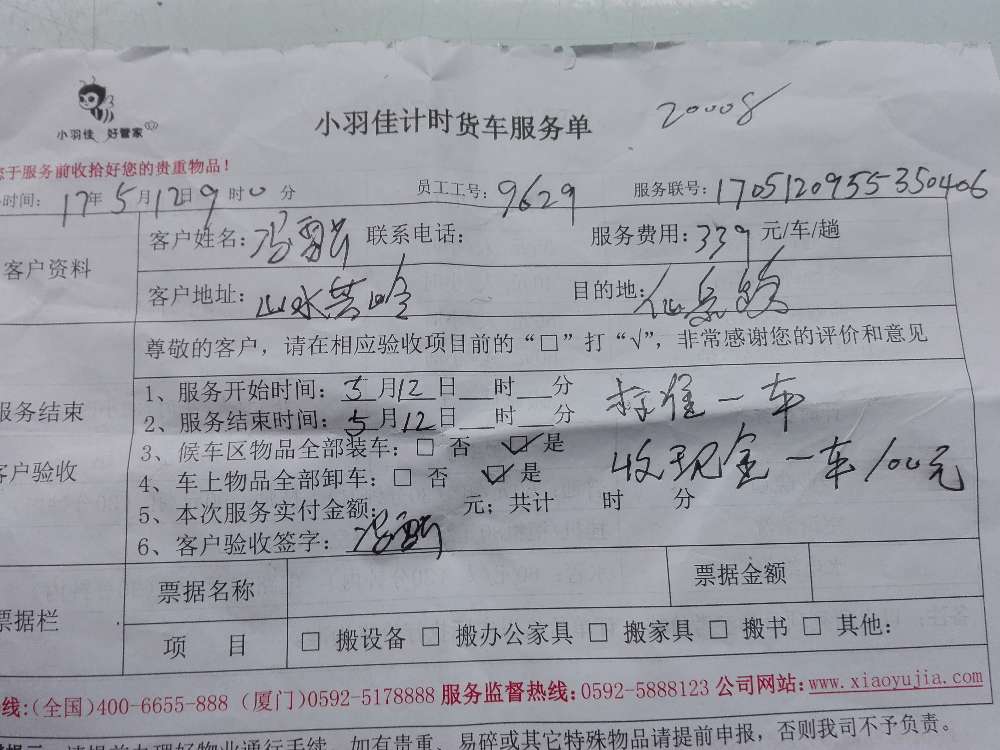 小羽佳 好管家
小羽佳计时货车服务单
20008
于服务前收拾好您的贵重物品！
时间：17年5月12日9时0分 员工工号：9629 服务联号：1705120955350406
客户资料
客户姓名： 联系电话： 服务费用：339元/车/趟
客户地址：山水 目的地：仙岳
尊敬的客户，请在相应验收项目前的“□”打“√”，非常感谢您的评价和意见
服务结束
客户验收
1、服务开始时间：5月12日__时__分
2、服务结束时间：5月12日__时__分
3、候车区物品全部装车：□ 否 ☑ 是
4、车上物品全部卸车：□ 否 ☑ 是
5、本次服务实付金额： 元；共计 时 分
6、客户验收签字：
标准一车
收现金一车100元
票据栏
票据名称 票据金额
项 目 □ 搬设备 □ 搬办公家具 □ 搬家具 □ 搬书 □ 其他：
线：(全国)400-6655-888 (厦门)0592-5178888 服务监督热线：0592-5888123 公司网站：www.xiaoyujia.com
请提前办理好物业通行手续，如有贵重、易碎或其它特殊物品请提前申报，否则我司不予负责。